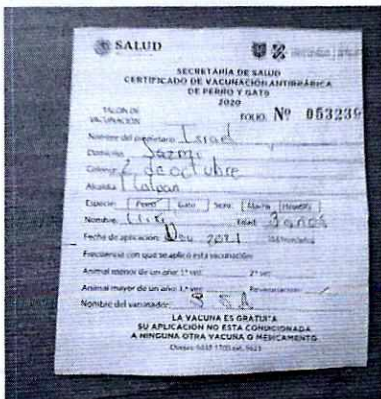 SALUD
SECRETARÍA DE SALUD
CERTIFICADO DE VACUNACIÓN ANTIRRÁBICA
DE PERRO Y GATO
2020
TALÓN DE
VACUNACIÓN
FOLIO: Nº 053239
Nombre del propietario: Israel
Domicilio: Jazmi
Colonia: 2 de octubre
Alcaldía: Tlalpan
Especie: Perro Gato Sexo: Macho Hembra
Nombre: Edad: 3 años
Fecha de aplicación: Nov 2021
Frecuencia con que se aplicó esta vacunación:
Animal menor de un año: 1ª vez: 2ª vez:
Animal mayor de un año: 1ª vez: Revacunación:
Nombre del vacunador: SSA
LA VACUNA ES GRATUITA
SU APLICACIÓN NO ESTÁ CONDICIONADA
A NINGUNA OTRA VACUNA O MEDICAMENTO